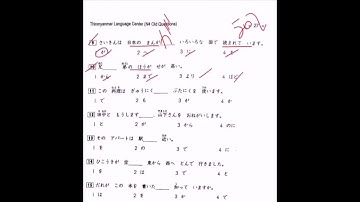 Thinonyanmar Language Center (N4 Old Questions)
9 さいきんは 日本の まんが いろいろな 国で 読まれて います。
1 が 2 3 に 4
10 足 弟の ほうが せが 高い。
1 から 2 3 より 4 ほど
11 この 料理は ぎゅうにく ぶたにくを 使います。
1 で 2 も 3 が 4 か
12 田中と もうします 山下さんを おねがいします。
1 と 2 が 3 から 4 のに
13 その アパートは 駅 近い。
1 を 2 の 3 で 4 に
14 ひこうきが 空 東から 西へ とんで 行きました。
1 に 2 を 3 が 4 で
15 だれが この 本を 書いた 知って いますか。
1 を 2 の 3 か 4 と